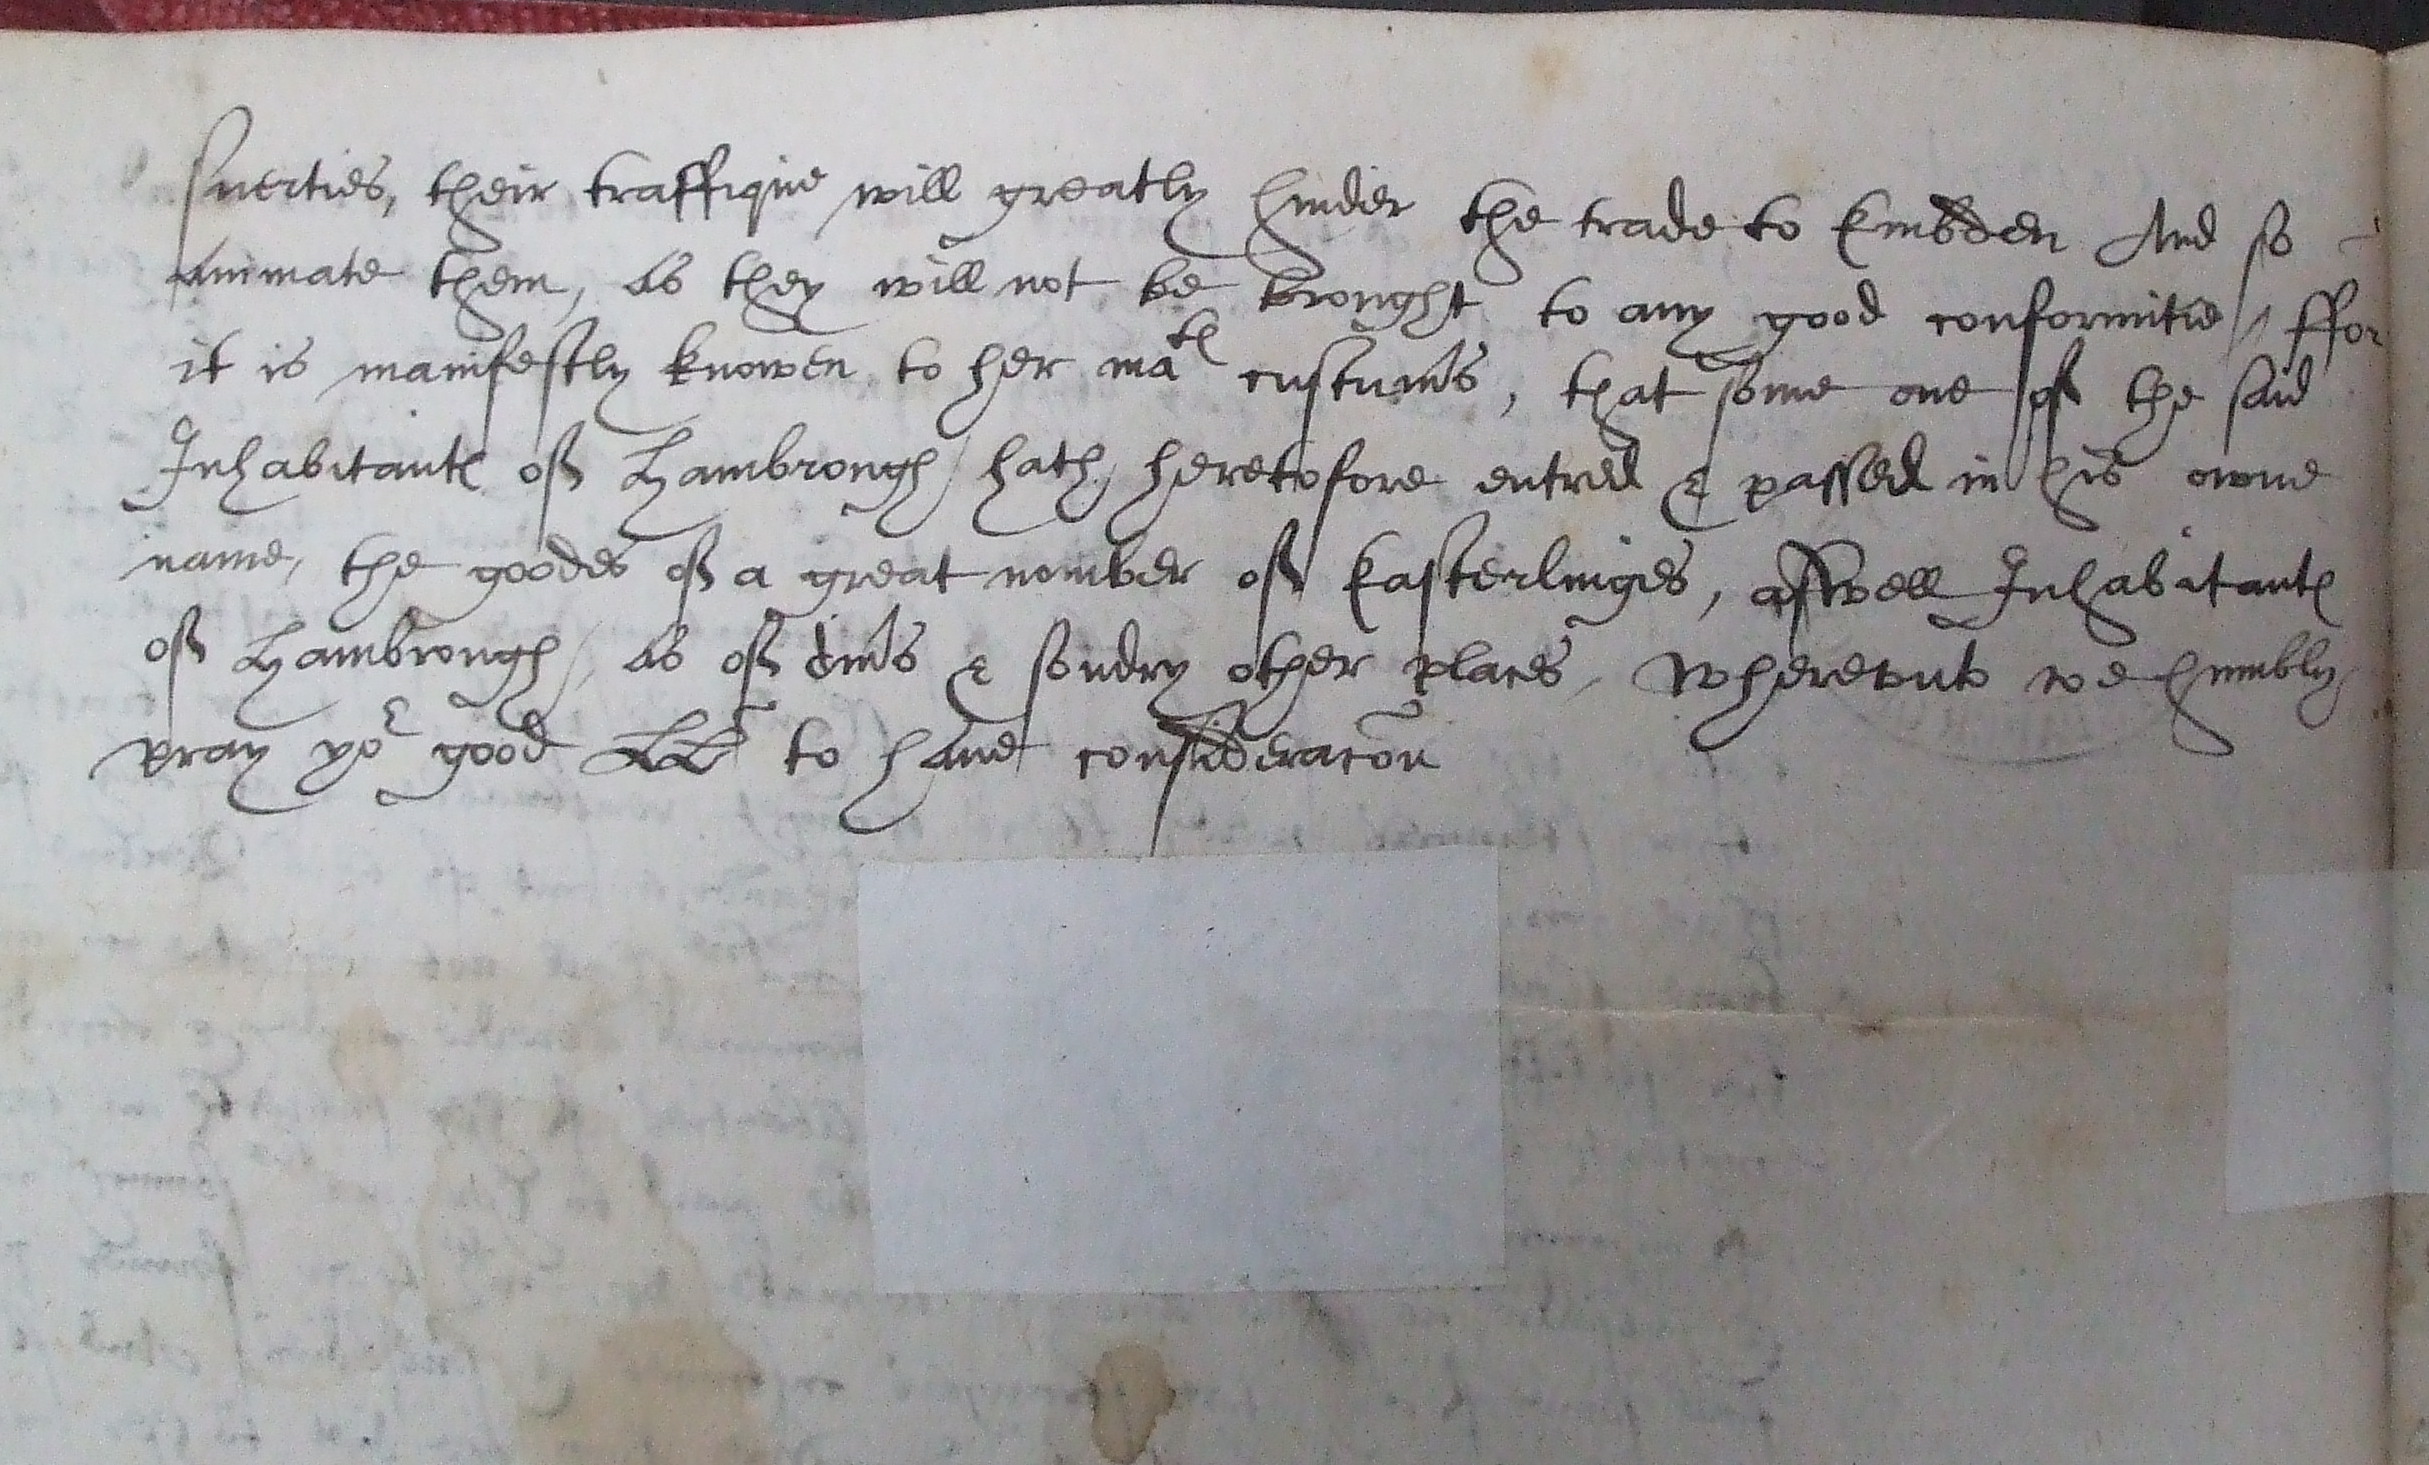 suerties, their traffique will greatly hinder the trade to Embden And so
animate them, as they will not be brought to any good conformitie // ffor
it is manifestly knowen to her ma^tes custum̃s, that some one of the said
Inhabitantes of Hambrough / hath, heretofore entred & passed in his owne
name, the goodes of a great nomber of Easterlinges, aswell Inhabitantes
of Hambrough, as of dm̃s & sondry other places, Wherevnto we humbly
pray yo^r good LL to haue consideracõn